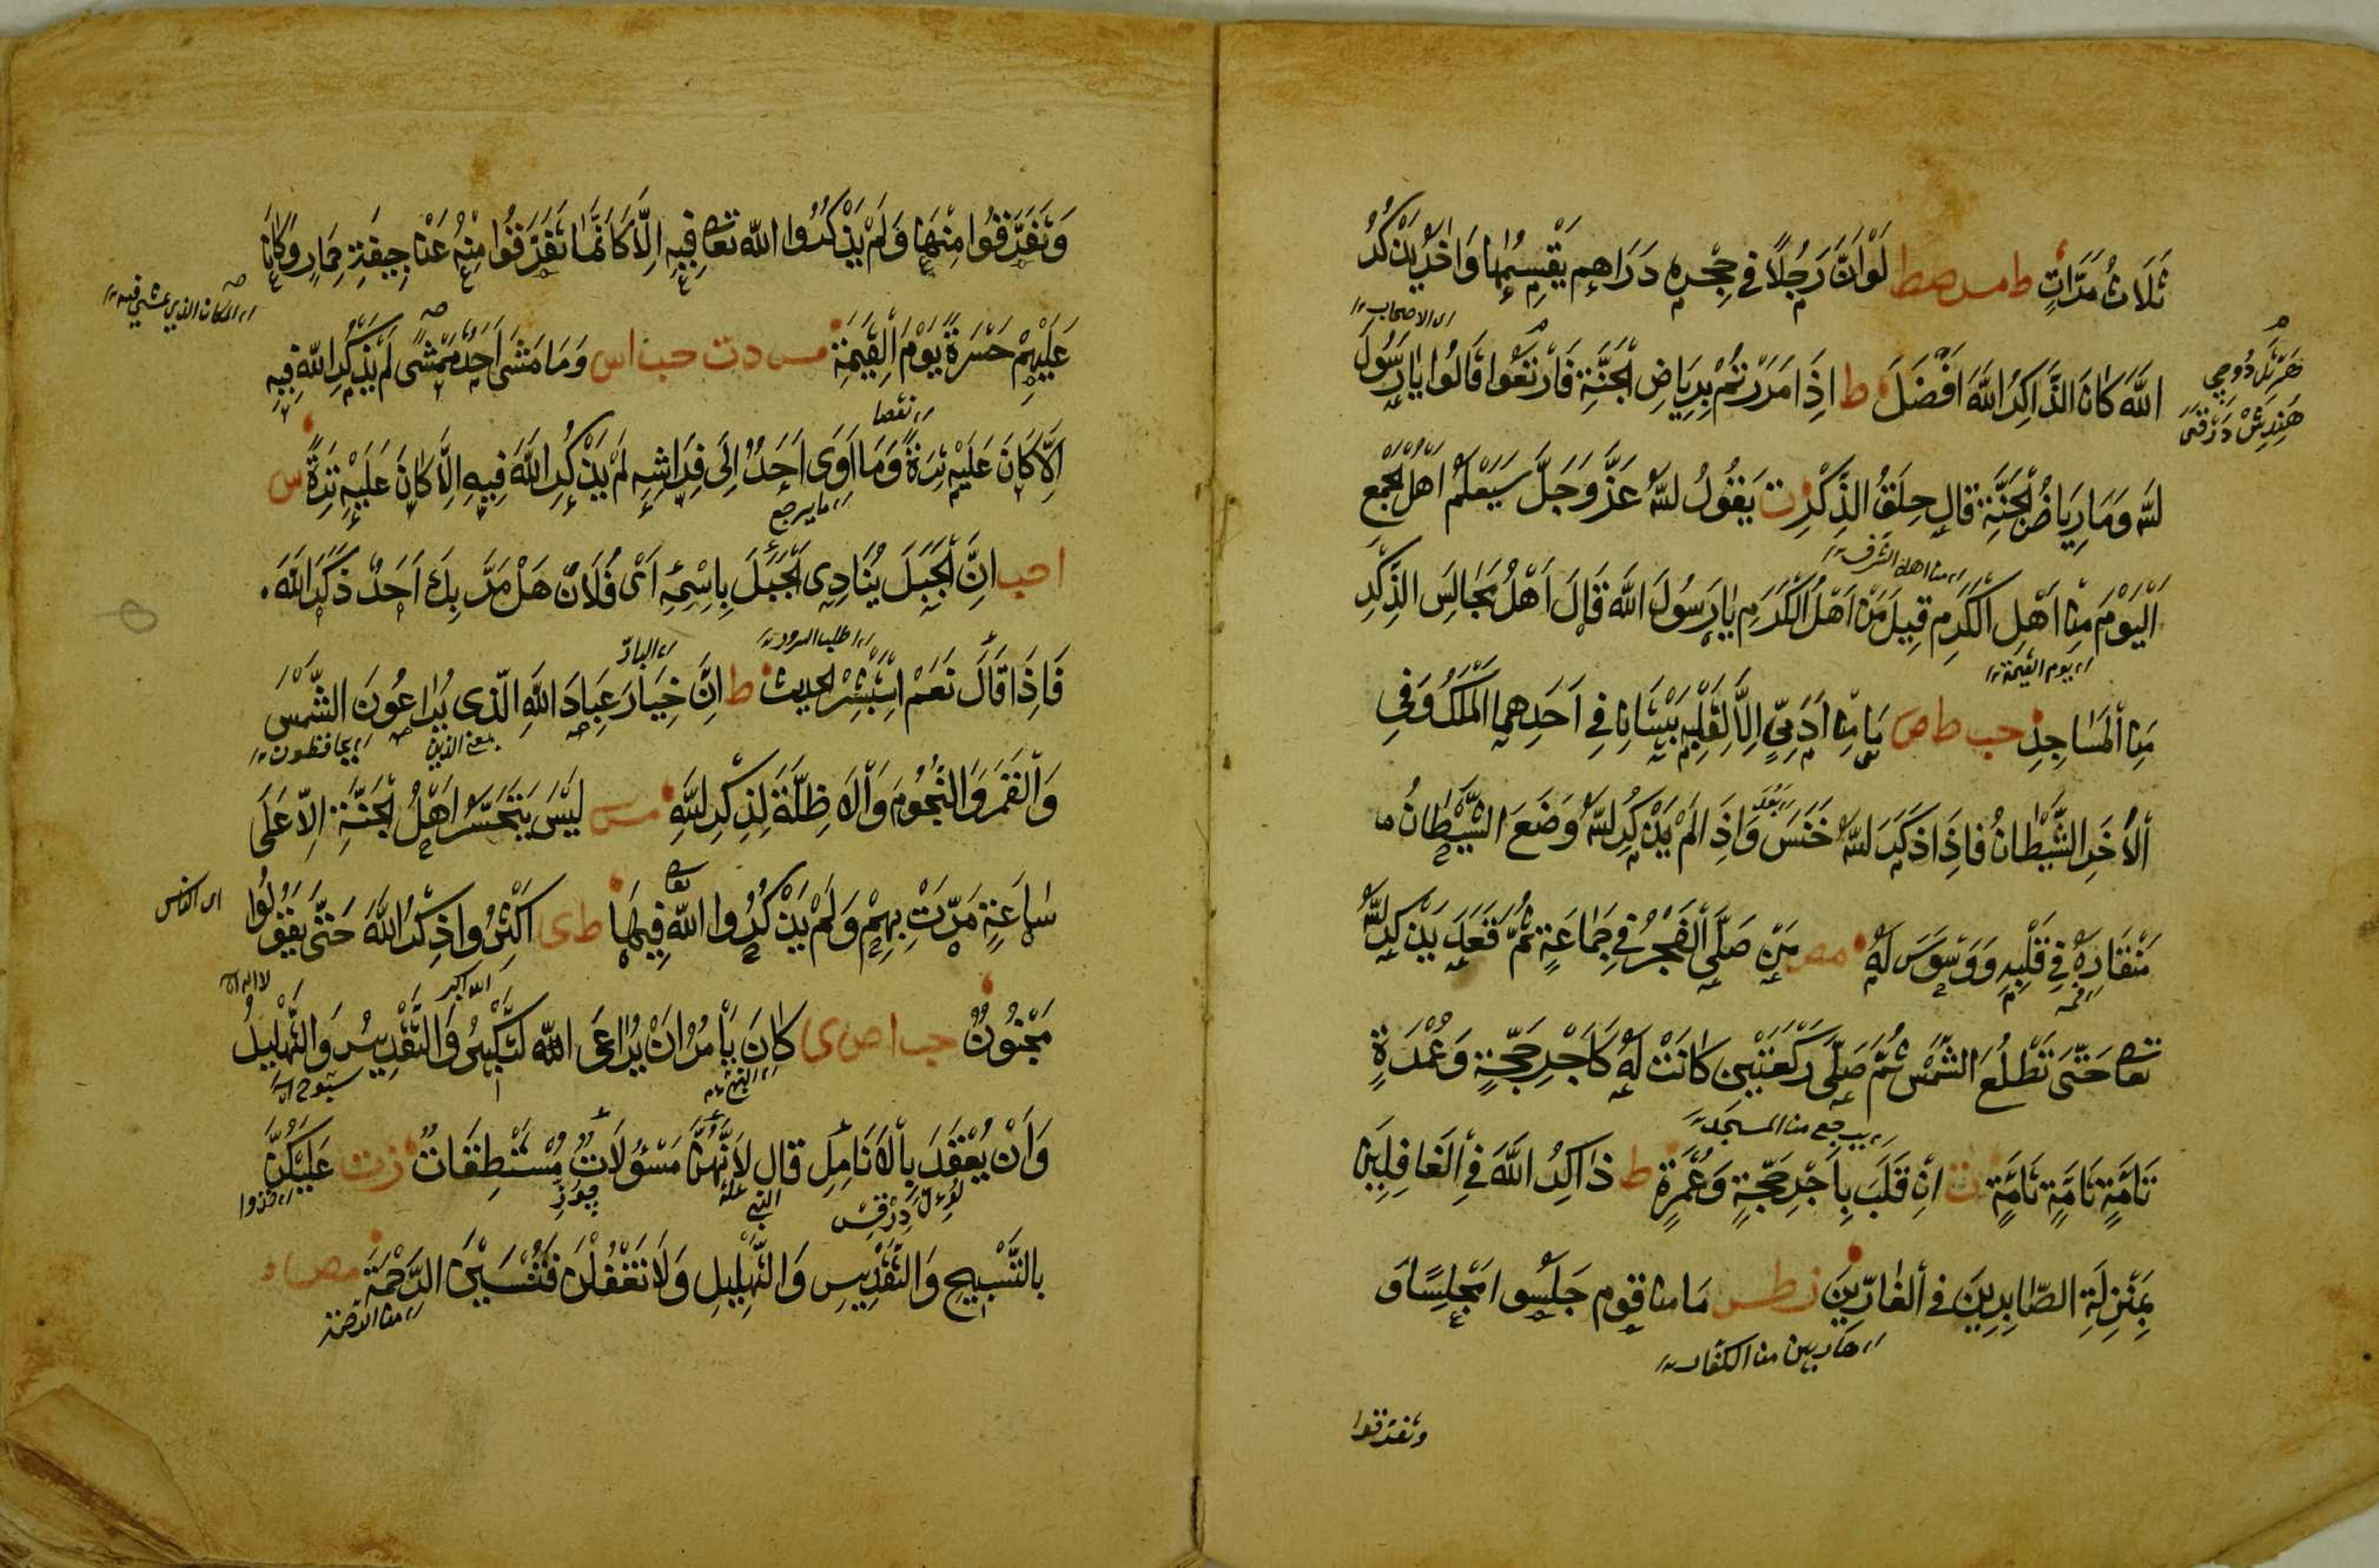 ثَلَاثُ مَرَّاتٍ ط مس صط لَوْ اَنَّ رَجُلًا في حِجْرِهِ دَرَاهِم يَقْسِمُهَا وَاٰخَرُ يَذْكُرُ
ای الاصحاب
اللّٰهَ كَانَ الذَّاكِرُ اللّٰهَ اَفْضَلَ ط اِذَا مَرَرْتُمْ بِرِيَاضِ الْجَنَّةِ فَارْتَعُوا قَالُوا يَا رَسُولَ
للّٰه وَمَا رِيَاضُ الْجَنَّةِ قال حِلَقُ الذِّكْرِ ت يَقُولُ للّٰهُ عَزَّ وَجَلَّ سَيَعْلَمُ اَهْلُ الْجَمْعِ
من اهل الشرف
اَلْيَوْمَ مِنْ اَهْلِ الْكَرَمِ قِيلَ مَنْ اَهْلُ الْكَرَمِ يَا رَسُولَ اللّٰه قَالَ اَهْلُ مَجَالِسَ الذِّكْرِ
يوم القيمة
مِنَ الْمَسَاجِدِ حب ط ص مَا مِنْ اٰدَمِيٍّ اِلَّا لِقَلْبِهِ بَيْتَانِ فِي اَحَدِهِمَا الْمَلَكُ وَفِي
اَلْاٰخَرِ الشَّيْطَانُ فَاِذَا ذَكَرَ للّٰهَ خَنَسَ وَاِذَا لَمْ يَذْكُرِ للّٰهَ وَضَعَ الشَّيْطَانُ
مِنْقَارَهُ فِي قَلْبِهِ وَوَسْوَسَ لَهُ مص مَنْ صَلَّى الْفَجْرَ فِي جَمَاعَةٍ ثُمَّ قَعَدَ يَذْكُرِ للّٰهَ
فمه
تعا حَتّٰى تَطْلُعَ الشَّمْسُ ثُمَّ صَلَّى رَكْعَتَيْنِ كَانَتْ لَهُ كَاَجْرِ حَجَّةٍ وَعُمْرَةٍ
يرجع من المسجد
تَامَّةٍ تَامَّةٍ تَامَّةٍ ت اِنْقَلَبَ بِاَجْرِ حَجَّةٍ وَعُمْرَةٍ ط ذَاكِرُ اللّٰهَ فِي الْغَافِلِينَ
بِمَنْزِلَةِ الصَّابِرِينَ فِي الْفَارِّينَ ر طس مَا مِنْ قوم جَلَسُوا مَجْلِسًا وَ
هاربين من الكفار
وتفرقوا
وَتَفَرَّقُوا مِنْهَا وَلَمْ يَذْكُرُوا اللّٰه تعا فِيهِ اِلَّا كَاَنَّمَا تَفَرَّقُوا مِنْهُ عَنْ جِيفَةِ حِمَارٍ وَكَانَ
المكان الذي يمشي فيه
عَلَيْهِمْ حَسْرَةً يَوْمَ الْقِيَمَةِ مس د ت حب ا س وَمَا مَشَى اَحَدٌ مَمْشًى لَمْ يَذْكُرِ اللّٰه فِيهِ
نقصا
اِلَّا كَانَ عَلَيْهِ تِرَةً وَمَا اَوَى اَحَدٌ اِلَى فِرَاشِهِ لَمْ يَذْكُرِ اللّٰهَ فِيهِ اِلَّا كَانَ عَلَيْهِ تِرَةً س
ما يرجع
ا حب اِنَّ الْجَبَلَ يُنَادِى الْجَبَلَ بِاِسْمِهِ اَىْ فُلَانٌ هَلْ مَرَّ بِكَ اَحَدٌ ذَكَرَ اللّٰهَ
فَاِذَا قَالَ نَعَمْ اِسْتَبْشَرَ الحديث ط اِنَّ خِيَارَ عِبَادَ اللّٰهِ الَّذِى يُرَاعُونَ الشَّمْسَ
بمعنى الذين
يحافظون
وَالْقَمَرَ وَالنُّجُومَ وَالْاَظِلَّةَ لِذِكْرِ للّٰهِ مس لَيْسَ يَتَحَسَّرُ اَهْلُ الْجَنَّةِ اِلَّا عَلَى
سَاعَةٍ مَرَّتْ بِهِمْ وَلَمْ يَذْكُرُوا اللّٰه تعا فِيهَا ط ى اَكْثِرُوا ذِكْرُ اللّٰهَ حَتّٰى يَقُولُوا
ای الناس
الله اكبر
لا اله الا
مَجْنُونٌ حب ا ص ى كَانَ يَأْمُرُ اَنْ يُرَاعَى اللّٰه لتَّكْبِيرُ وَالتَّقْدِيسُ وَالتَّهْلِيلُ
سبوح
وَاَنْ يُعْقَدَ بِالْاَنَامِلِ قال لِاَنَّهُنَّ مَسْؤُلَاتٌ مُسْتَنْطَقَاتٌ ز ت عَلَيْكُنَّ
خذوا
بالتَّسْبِيحِ وَالتَّقْدِيسِ وَالتَّهْلِيلِ وَلَا تَغْفُلْنَ فَتُنْسَيْنَ الرَّحْمَةَ مص